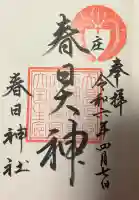 奉拝
令和六年四月七日
庄
春日大神
春日神社